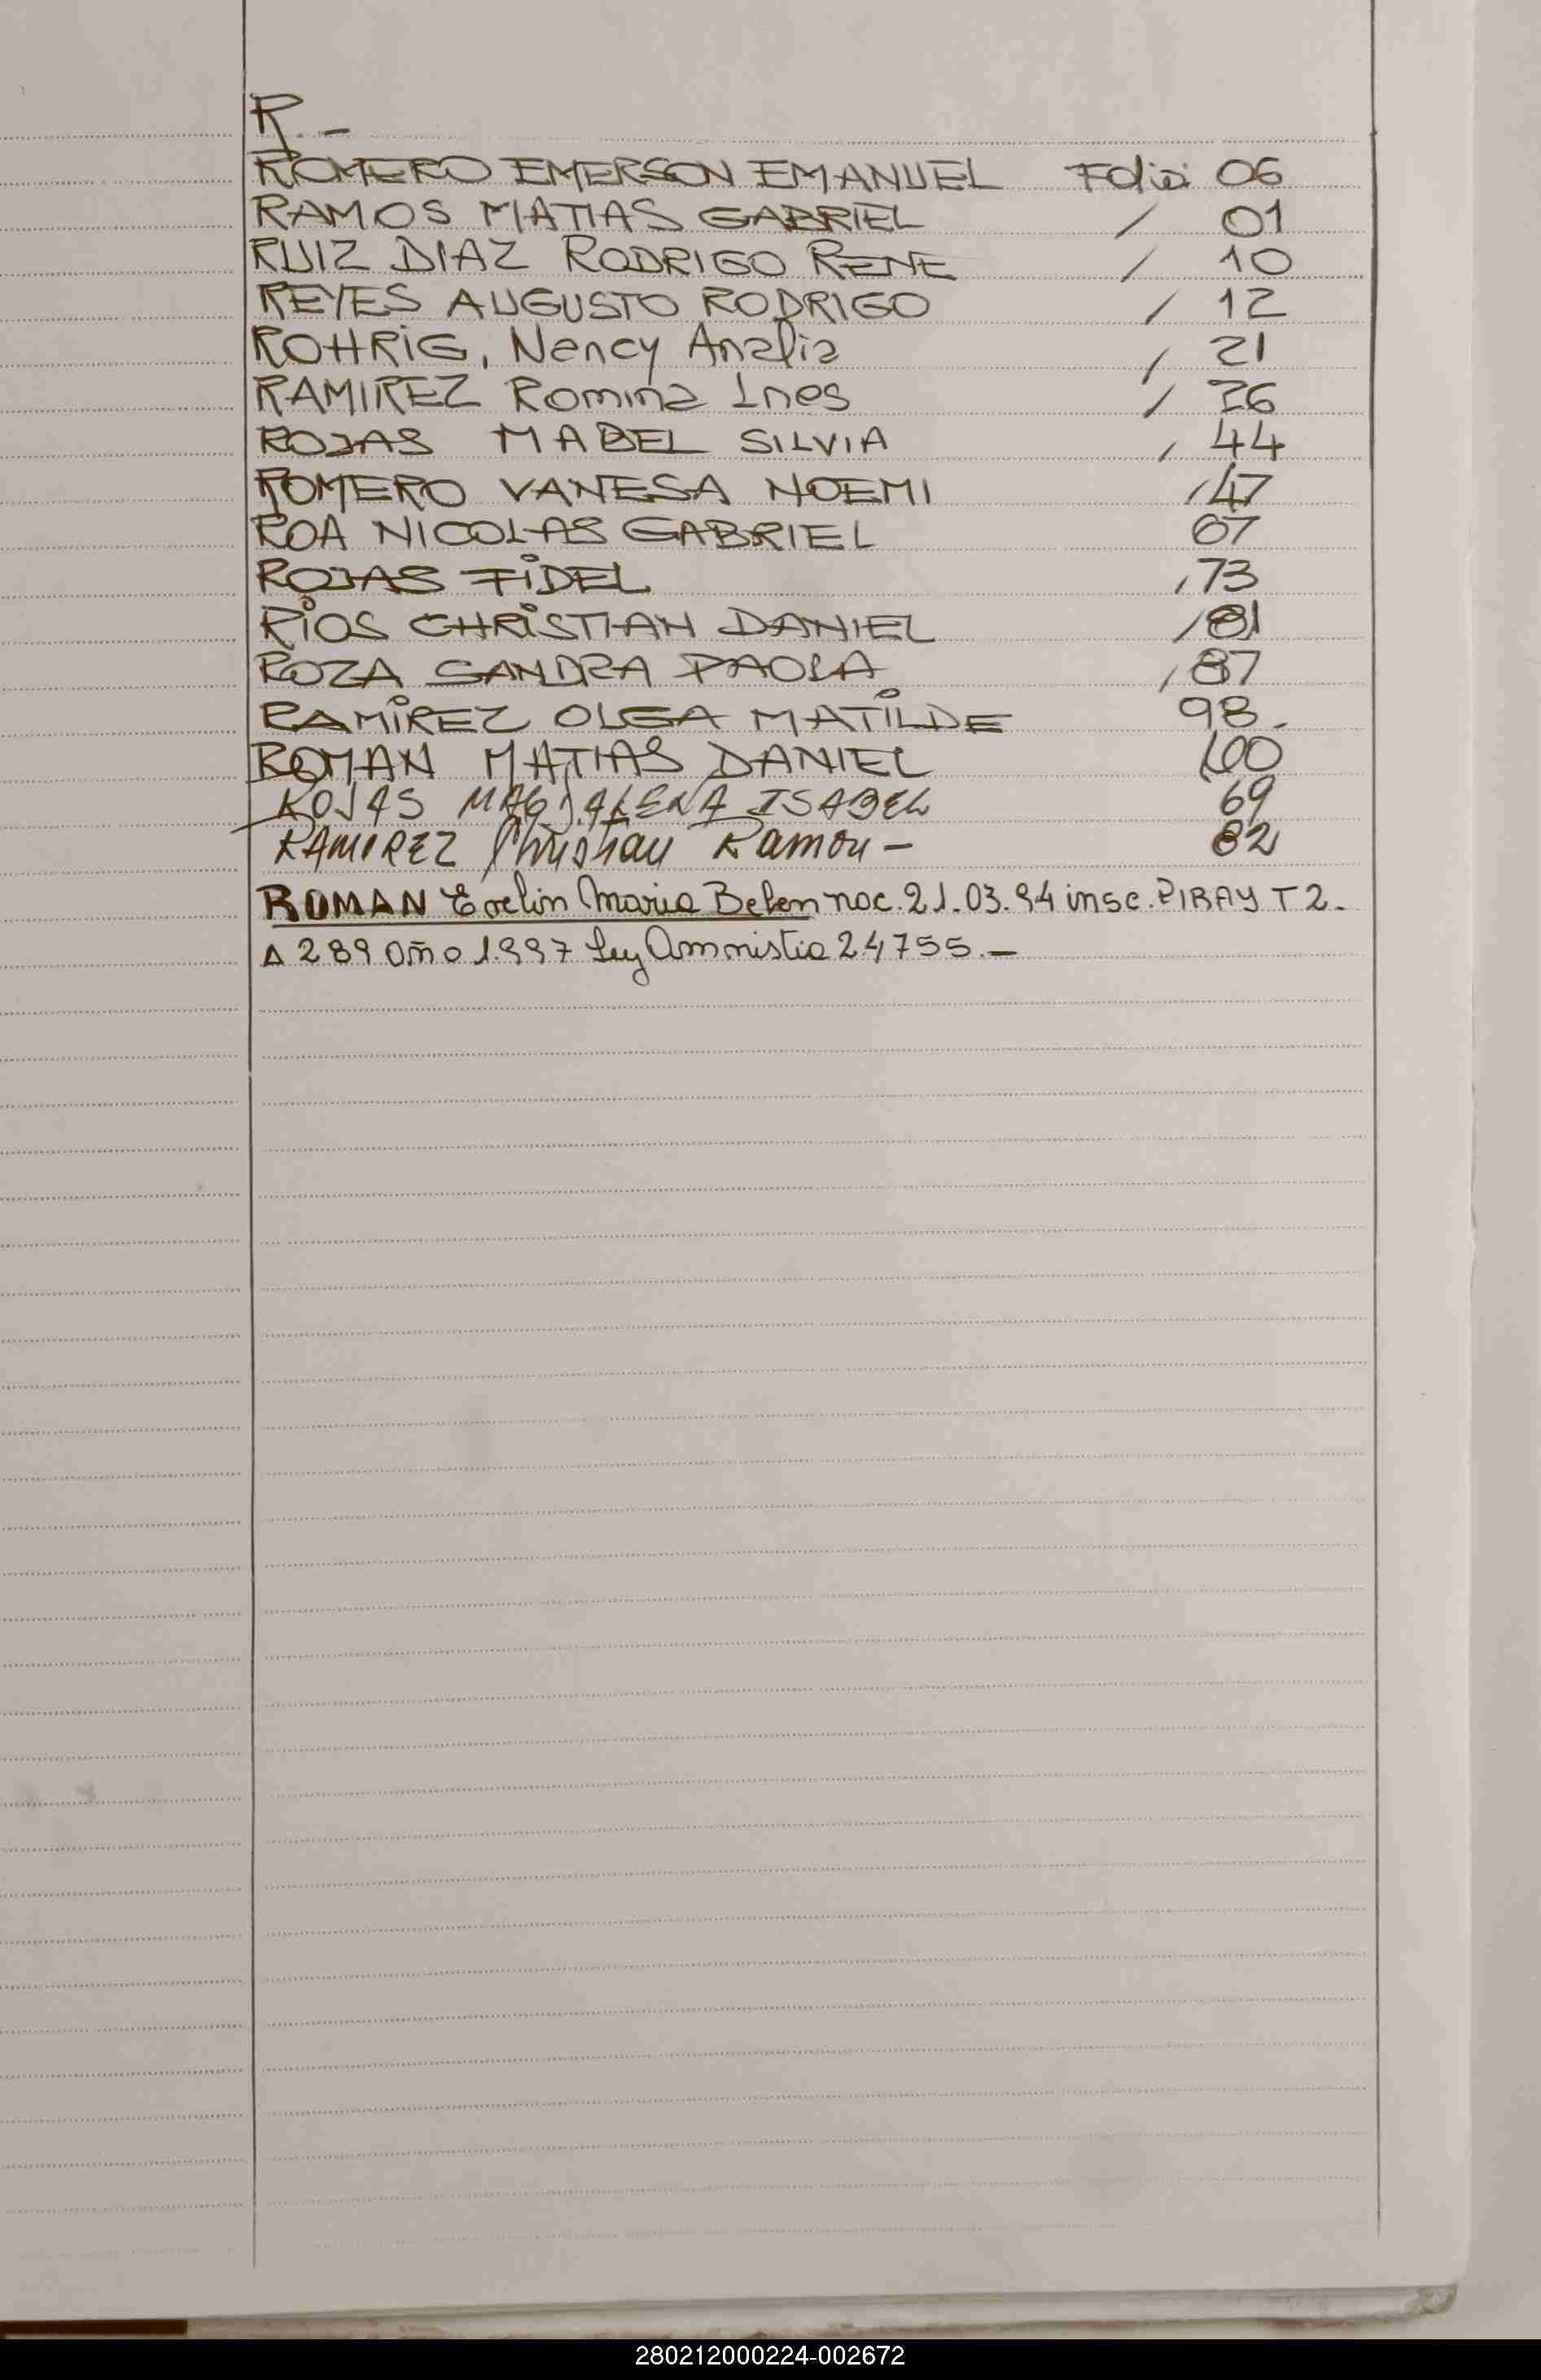 R.-
ROMERO EMERSON EMANUEL Folio 06
RAMOS MATIAS GABRIEL / 01
RUIZ DIAZ RODRIGO RENE / 10
REYES AUGUSTO RODRIGO / 12
ROHRIG, Nency Analia / 21
RAMIREZ Romina Ines / 26
ROJAS MABEL SILVIA / 44
ROMERO VANESA NOEMI / 47
ROA NICOLAS GABRIEL 67
ROJAS FIDEL , 73
RIOS CHRISTIAN DANIEL / 81
ROZA SANDRA PAOLA , 87
RAMIREZ OLGA MATILDE 98.
ROMAN MATIAS DANIEL 100
ROJAS MAGDALENA ISABEL 69
RAMIREZ Christian Ramon - 82
ROMAN Evelin Maria Belen nac. 21.03.94 insc. PIRAY T 2.
A 289 año 1.997 Ley Amnistia 24755.-
280212000224-002672